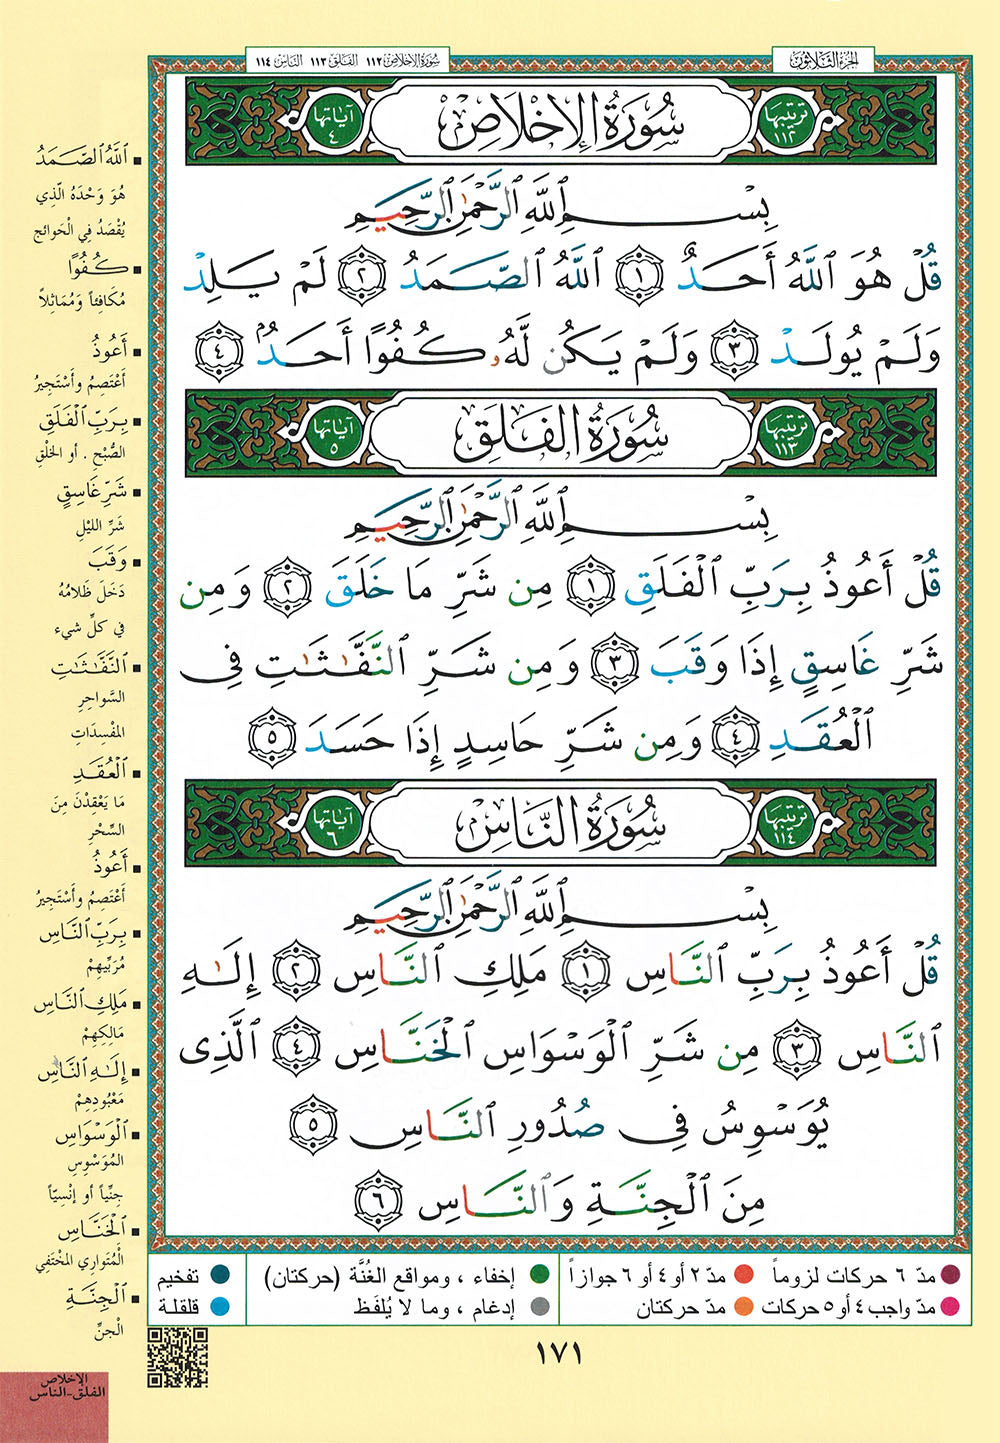 الجزء الثلاثون
سورة الإخلاص ١١٢ الفلق ١١٣ الناس ١١٤
ترتيبها ١١٢
سُورَةُ الإِخْلَاصِ
آياتها ٤
بِسْمِ ٱللَّهِ ٱلرَّحْمَٰنِ ٱلرَّحِيمِ
قُلْ هُوَ ٱللَّهُ أَحَدٌ ١ ٱللَّهُ ٱلصَّمَدُ ٢ لَمْ يَلِدْ
وَلَمْ يُولَدْ ٣ وَلَمْ يَكُن لَّهُۥ كُفُوًا أَحَدٌۢ ٤
ترتيبها ١١٣
سُورَةُ الفَلَقِ
آياتها ٥
بِسْمِ ٱللَّهِ ٱلرَّحْمَٰنِ ٱلرَّحِيمِ
قُلْ أَعُوذُ بِرَبِّ ٱلْفَلَقِ ١ مِن شَرِّ مَا خَلَقَ ٢ وَمِن
شَرِّ غَاسِقٍ إِذَا وَقَبَ ٣ وَمِن شَرِّ ٱلنَّفَّٰثَٰتِ فِى
ٱلْعُقَدِ ٤ وَمِن شَرِّ حَاسِدٍ إِذَا حَسَدَ ٥
ترتيبها ١١٤
سُورَةُ النَّاسِ
آياتها ٦
بِسْمِ ٱللَّهِ ٱلرَّحْمَٰنِ ٱلرَّحِيمِ
قُلْ أَعُوذُ بِرَبِّ ٱلنَّاسِ ١ مَلِكِ ٱلنَّاسِ ٢ إِلَٰهِ
ٱلنَّاسِ ٣ مِن شَرِّ ٱلْوَسْوَاسِ ٱلْخَنَّاسِ ٤ ٱلَّذِى
يُوَسْوِسُ فِى صُدُورِ ٱلنَّاسِ ٥
مِنَ ٱلْجِنَّةِ وَٱلنَّاسِ ٦
▪ ٱللَّهُ ٱلصَّمَدُ
هُوَ وَحْدَهُ الَّذِي
يُقْصَدُ فِي الْحَوائِج
▪ كُفُوًا
مُكَافِئاً وَمُمَاثِلاً
▪ أَعُوذُ
أَعْتَصِمُ وأَسْتَجِيرُ
▪ بِرَبِّ ٱلْفَلَقِ
الصُّبْحِ . أو الخَلْقِ
▪ شَرِّ غَاسِقٍ
شَرِّ الليْلِ
▪ وَقَبَ
دَخَلَ ظَلامُهُ
في كلِّ شيء
▪ ٱلنَّفَّٰثَٰتِ
السَّواحِرِ
المفْسِدَاتِ
▪ ٱلْعُقَدِ
مَا يَعْقِدْنَ مِنَ
السِّحْرِ
▪ أَعُوذُ
أَعْتَصِمُ وأَسْتَجِيرُ
▪ بِرَبِّ ٱلنَّاسِ
مُرَبِّيهِمْ
▪ مَلِكِ ٱلنَّاسِ
مَالِكِهِمْ
▪ إِلَٰهِ ٱلنَّاسِ
مَعْبُودِهِمْ
▪ ٱلْوَسْوَاسِ
المُوَسْوِسِ
جِنِّياً أو إنْسِيّاً
▪ ٱلْخَنَّاسِ
الْمُتَوارِي المخْتَفِي
▪ ٱلْجِنَّةِ
الْجنِّ
مدّ ٦ حركات لزوماً
مدّ ٢ أو ٤ أو ٦ جوازاً
إخفاء ، ومواقع الغُنَّة (حركتان)
تفخيم
مدّ واجب ٤ أو ٥ حركات
مدّ حركتان
إدغام ، وما لا يُلفَظ
قلقلة
١٧١
الإخلاص
الفلق-الناس